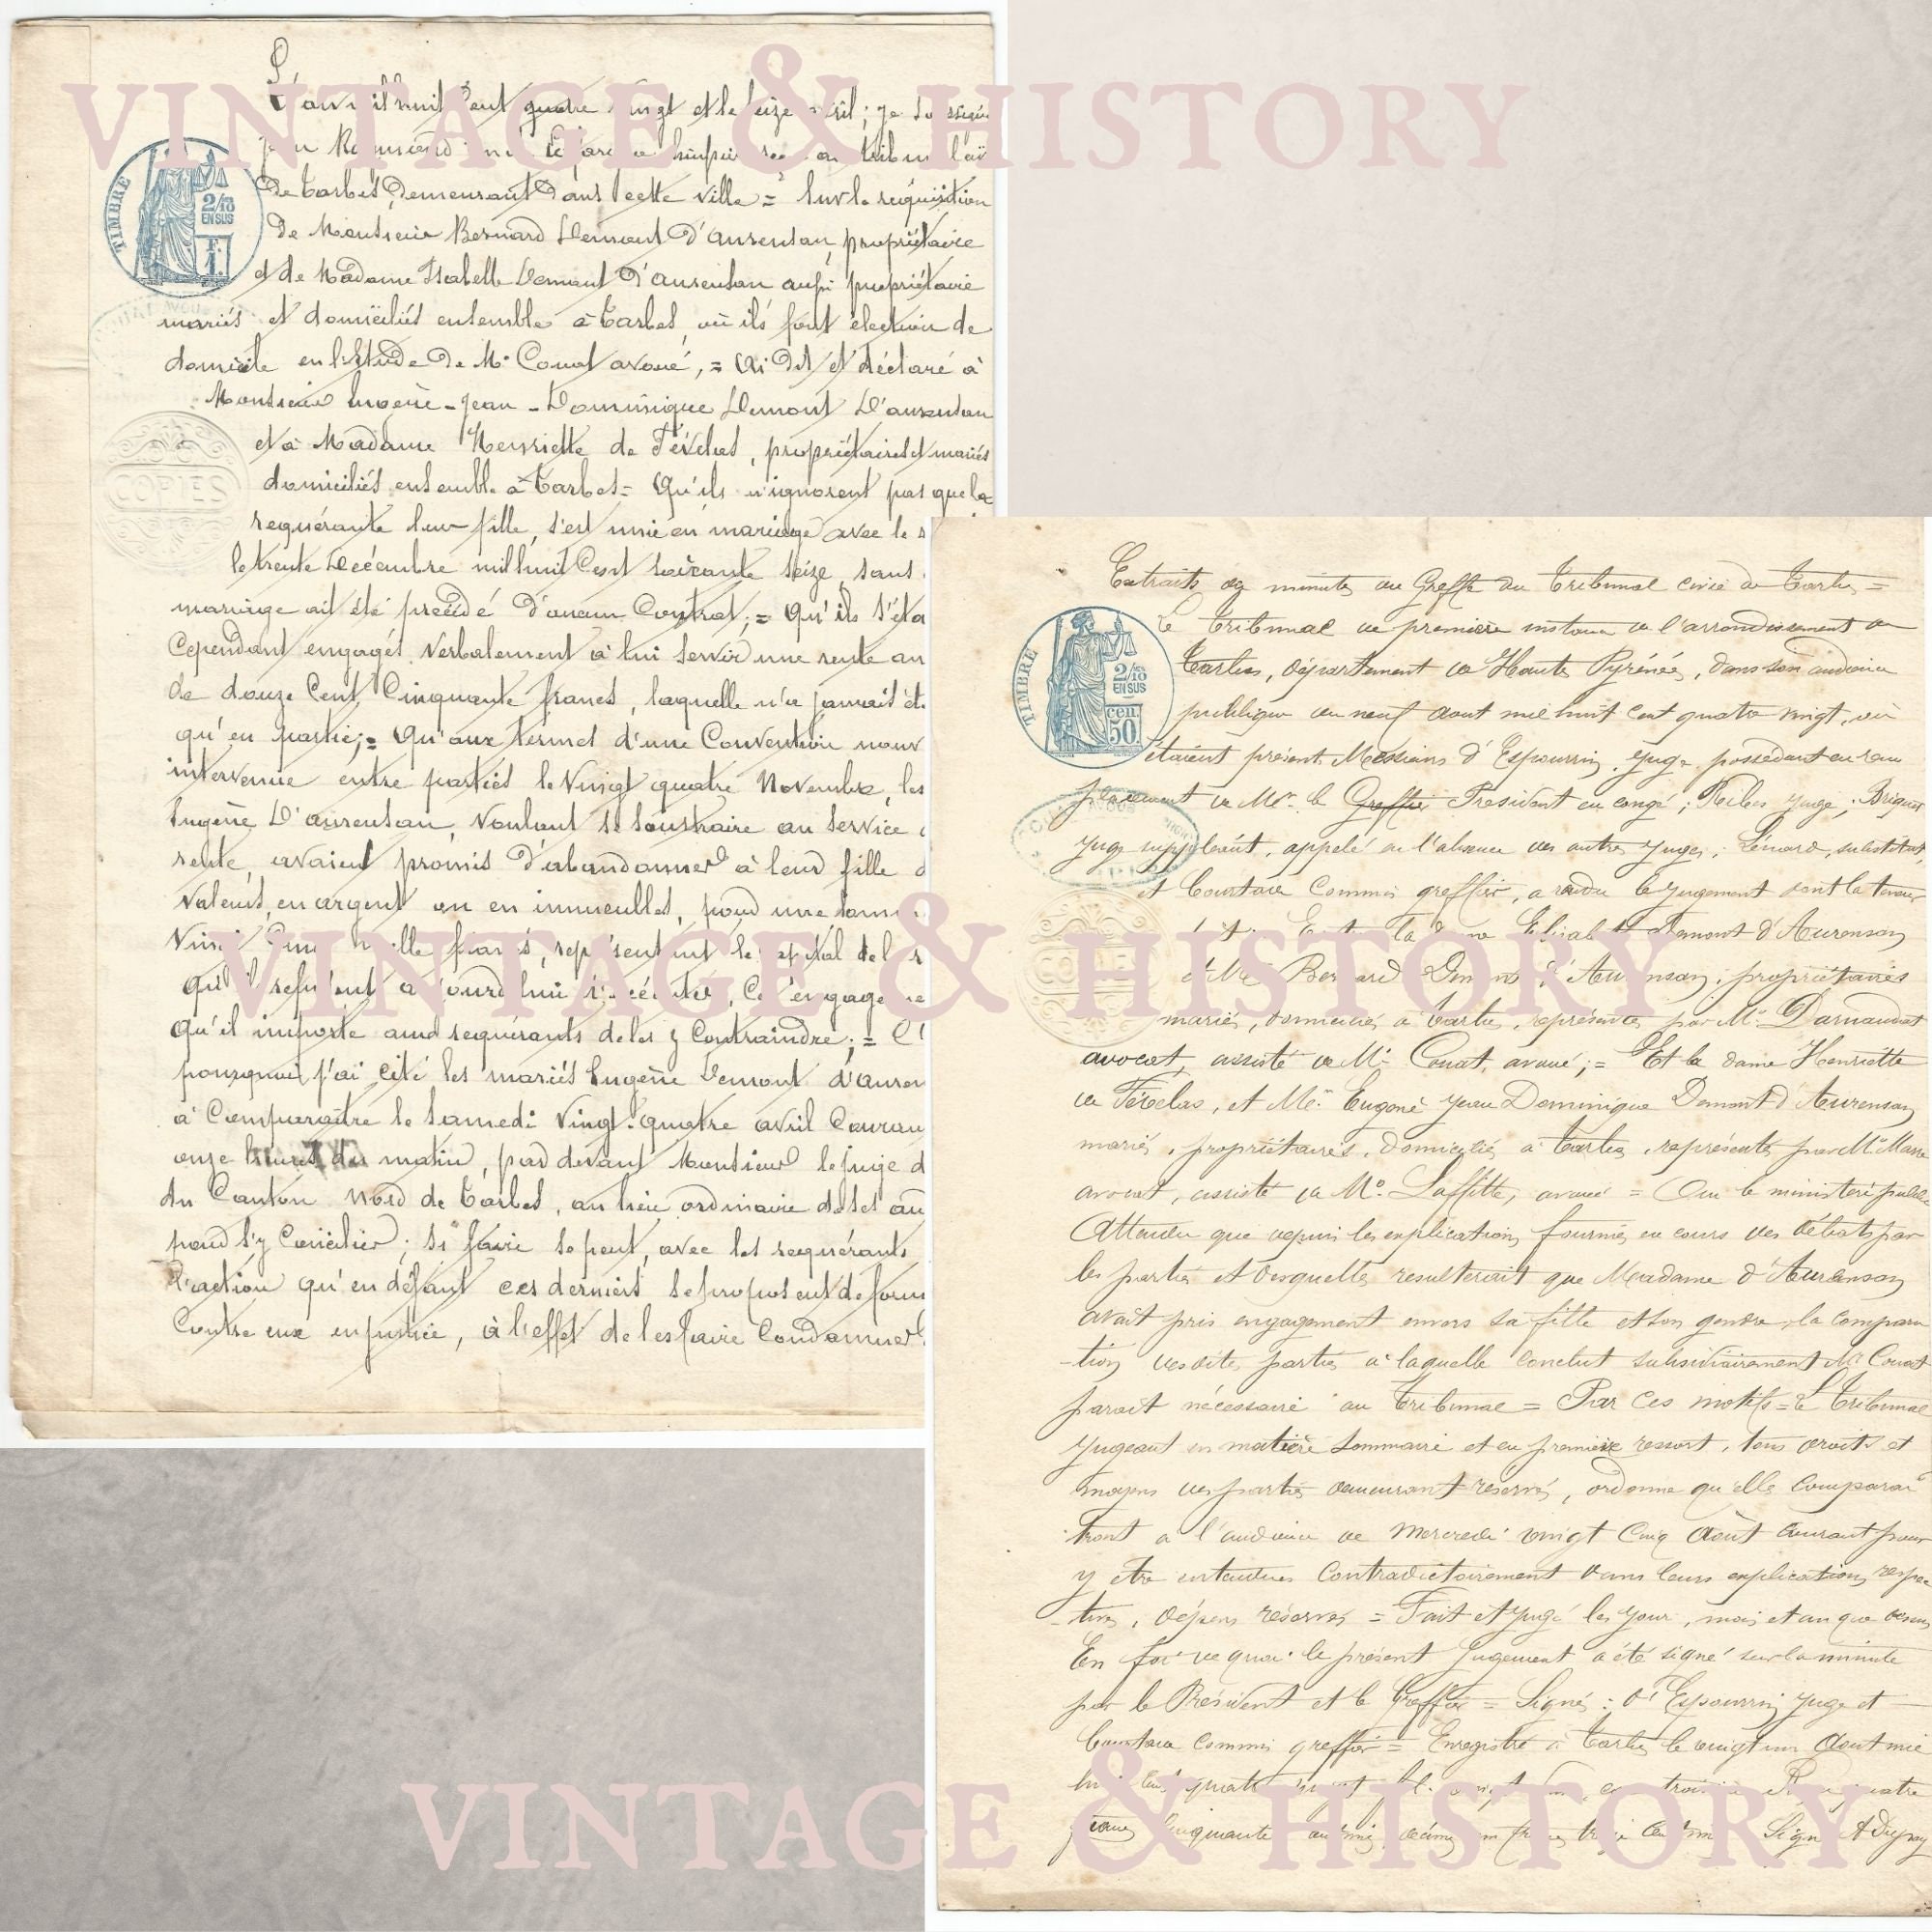 VINTAGE & HISTORY
L'an mil huit cent quatre vingt et le seize avril; je soussigné
de Tarbes, demeurant dans cette ville = Sur la requisition
de Monsieur Bernard Demont d'Aurensan, propriétaire
et de Madame Isabelle Demont d'Aurensan aussi propriétaire
mariés et domiciliés ensemble à Tarbes, où ils font élection de
domicile en l'étude de Me Couat avoué, = Ai dit et déclaré à
Monsieur Eugène-Jean-Dominique Demont D'aurensan
et à Madame Henriette de Févelas, propriétaires et mariés
domiciliés ensemble à Tarbes = Qu'ils n'ignorent pas que la
requérante leur fille, s'est unie en mariage avec le
le trente Décembre mil huit Cent soixante seize, sans
mariage ait été précédé d'aucun Contrat; = Qu'ils s'éta
Cependant engagés Verbalement à lui servir une rente an
de douze Cent Cinquante francs, laquelle n'a jamais ét
qu'en partie; = Qu'aux termes d'une Convention nouv
intervenue entre parties le Vingt quatre Novembre, les
Eugène D'aurensan, Voulant se soustraire au service
rente, avaient promis d'abandonner à leur fille d
Valeurs, en argent ou en immeubles, pour une somme
Vingt Cinq mille francs, représentant le Capital de la r
qu'ils refusent aujourd'hui d'exécuter, Cet engageme
Qu'il importe aux requérants de les y Contraindre; = C'
pourquoi j'ai cité les mariés Eugène Demont d'auren
à Comparaître le Samedi Vingt-quatre avril Couran
onze heures du matin, par devant Monsieur le juge d
du Canton Nord de Tarbes, au lieu ordinaire de ses au
pour s'y Concilier; si faire se peut, avec les requérants
l'action qu'en défaut ces derniers se proposent de form
Contre eux en justice, à l'effet de les faire Condamner
TIMBRE
2/10
EN SUS
F.
1.
COPIES
Extraits des minutes du Greffe du Tribunal civil de Tarbes =
Le Tribunal de première instance de l'arrondissement de
Tarbes, département des Hautes Pyrénées, dans son audience
publique du neuf aout mil huit cent quatre vingt, où
étaient présents Messieurs d'Espourrin, juge, possédant en rem
placement de Mr. le Greffier Président en congé; Ribes juge; Brigues
juge suppléant, appelé en l'absence des autres juges; Lénard, substitut,
et Courtade Commis greffier, a rendu le jugement dont la teneur
suit: Entre la dame Elisabeth Demont d'Aurensan
et Mr. Bernard Demont d'Aurensan, propriétaires
mariés, domiciliés à Tarbes, représentés par Me. Darnaudat
avocat, assisté de Me. Couat, avoué; = Et la dame Henriette
de Févelas, et Mr. Eugène Jean Dominique Demont d'Aurensan
mariés, propriétaires, domiciliés à Tarbes, représentés par Me
avocat, assisté de Me. Laffitte, avoué = Oui le ministère public
Attendu que depuis les explications fournies en cours des débats par
les parties et desquelles resulterait que Madame d'Aurensan
avait pris engagement envers sa fille et son gendre, la comparu
-tion desdites parties à laquelle conclut subsidiairement Me Couat
parait nécessaire au Tribunal = Par ces motifs = Le Tribunal
Jugeant en matière sommaire et en première ressort, tous droits et
moyens des parties demeurant réservés, ordonne qu'elles comparaî
tront à l'audience de Mercredi vingt cinq Août courant pour
y être entendues Contradictoirement dans leurs explications respec
-tives, dépens réservés = Fait et jugé les jour, mois et an que dessus
En foi de quoi le présent jugement a été signé sur la minute
par le Président et le Greffier = Signés: d'Espourrin juge et
Courtade Commis greffier = Enregistré à Tarbes le vingt un Aout mil
huit cent quatre vingt
francs cinquante
TIMBRE
2/10
EN SUS
cen.
50.
COPIES
VINTAGE & HISTORY
VINTAGE & HISTORY